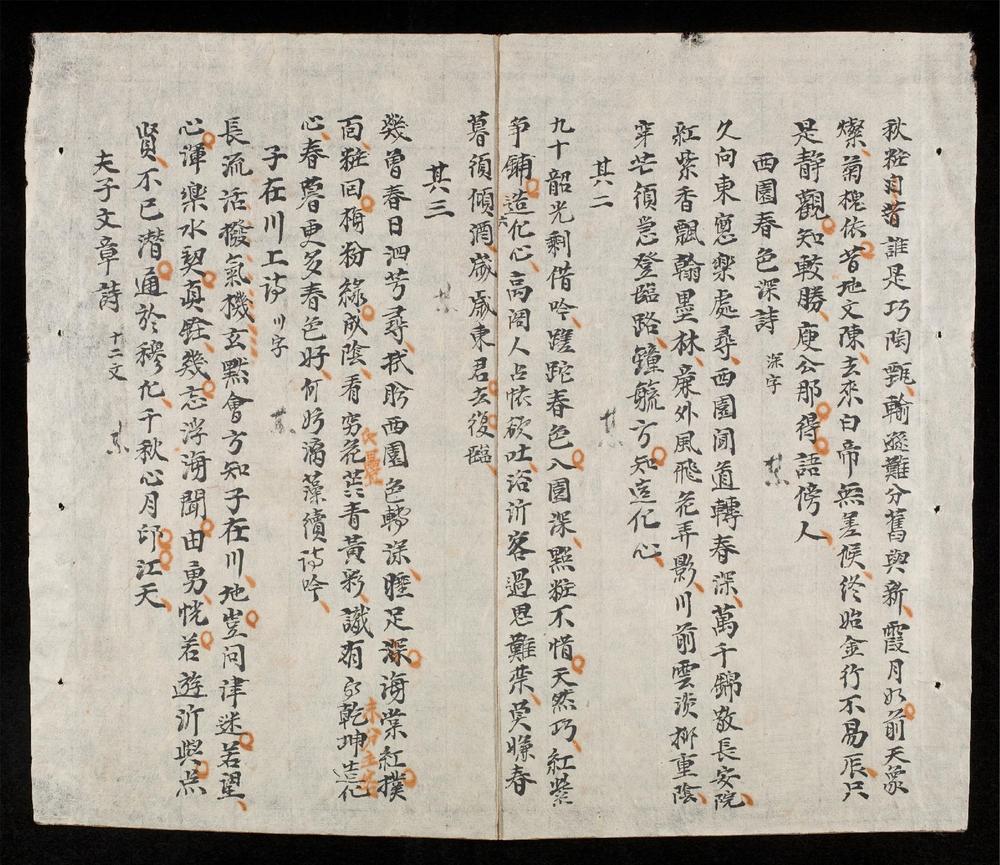 秋粧自昔誰是巧陶甄輸遜難分舊與新霞月如前天象
燦菊槐依昔地文陳去來白帝無差候終始金行不易辰只
是靜觀知較勝庾公那得語傍人
西園春色深詩 深字
久向東窓樂處尋西園聞道轉春深萬千錦敬長安院
紅紫香飄翰墨林簾外風飛花弄影川前雲淡柳重陰
穿芒須怠登臨路鐘毓方知造化心
其二
九十韶光剩借吟蹉跎春色入園深點粧不惜天然巧紅紫
爭鋪造化心高閣人占懷欲吐浴沂客過思難葉莫嫌春
暮須傾酒歲歲東君去復臨
其三
幾曾春日泗芳尋我盼西園色轉深睡足深海棠紅撲
面粧回梅粉綠成陰看穷花共青黃彩識有乾坤造化
心春暮更多春色好何妨摛藻續詩吟
子在川上詩 川字
長流活撥氣機玄默會方知子在川地豈問津迷若望
心渾樂水契真詮幾忘浮海聞由勇恍若遊沂與点
賢不已潛通於穆化千秋心月印江天
夫子文章詩 十二文